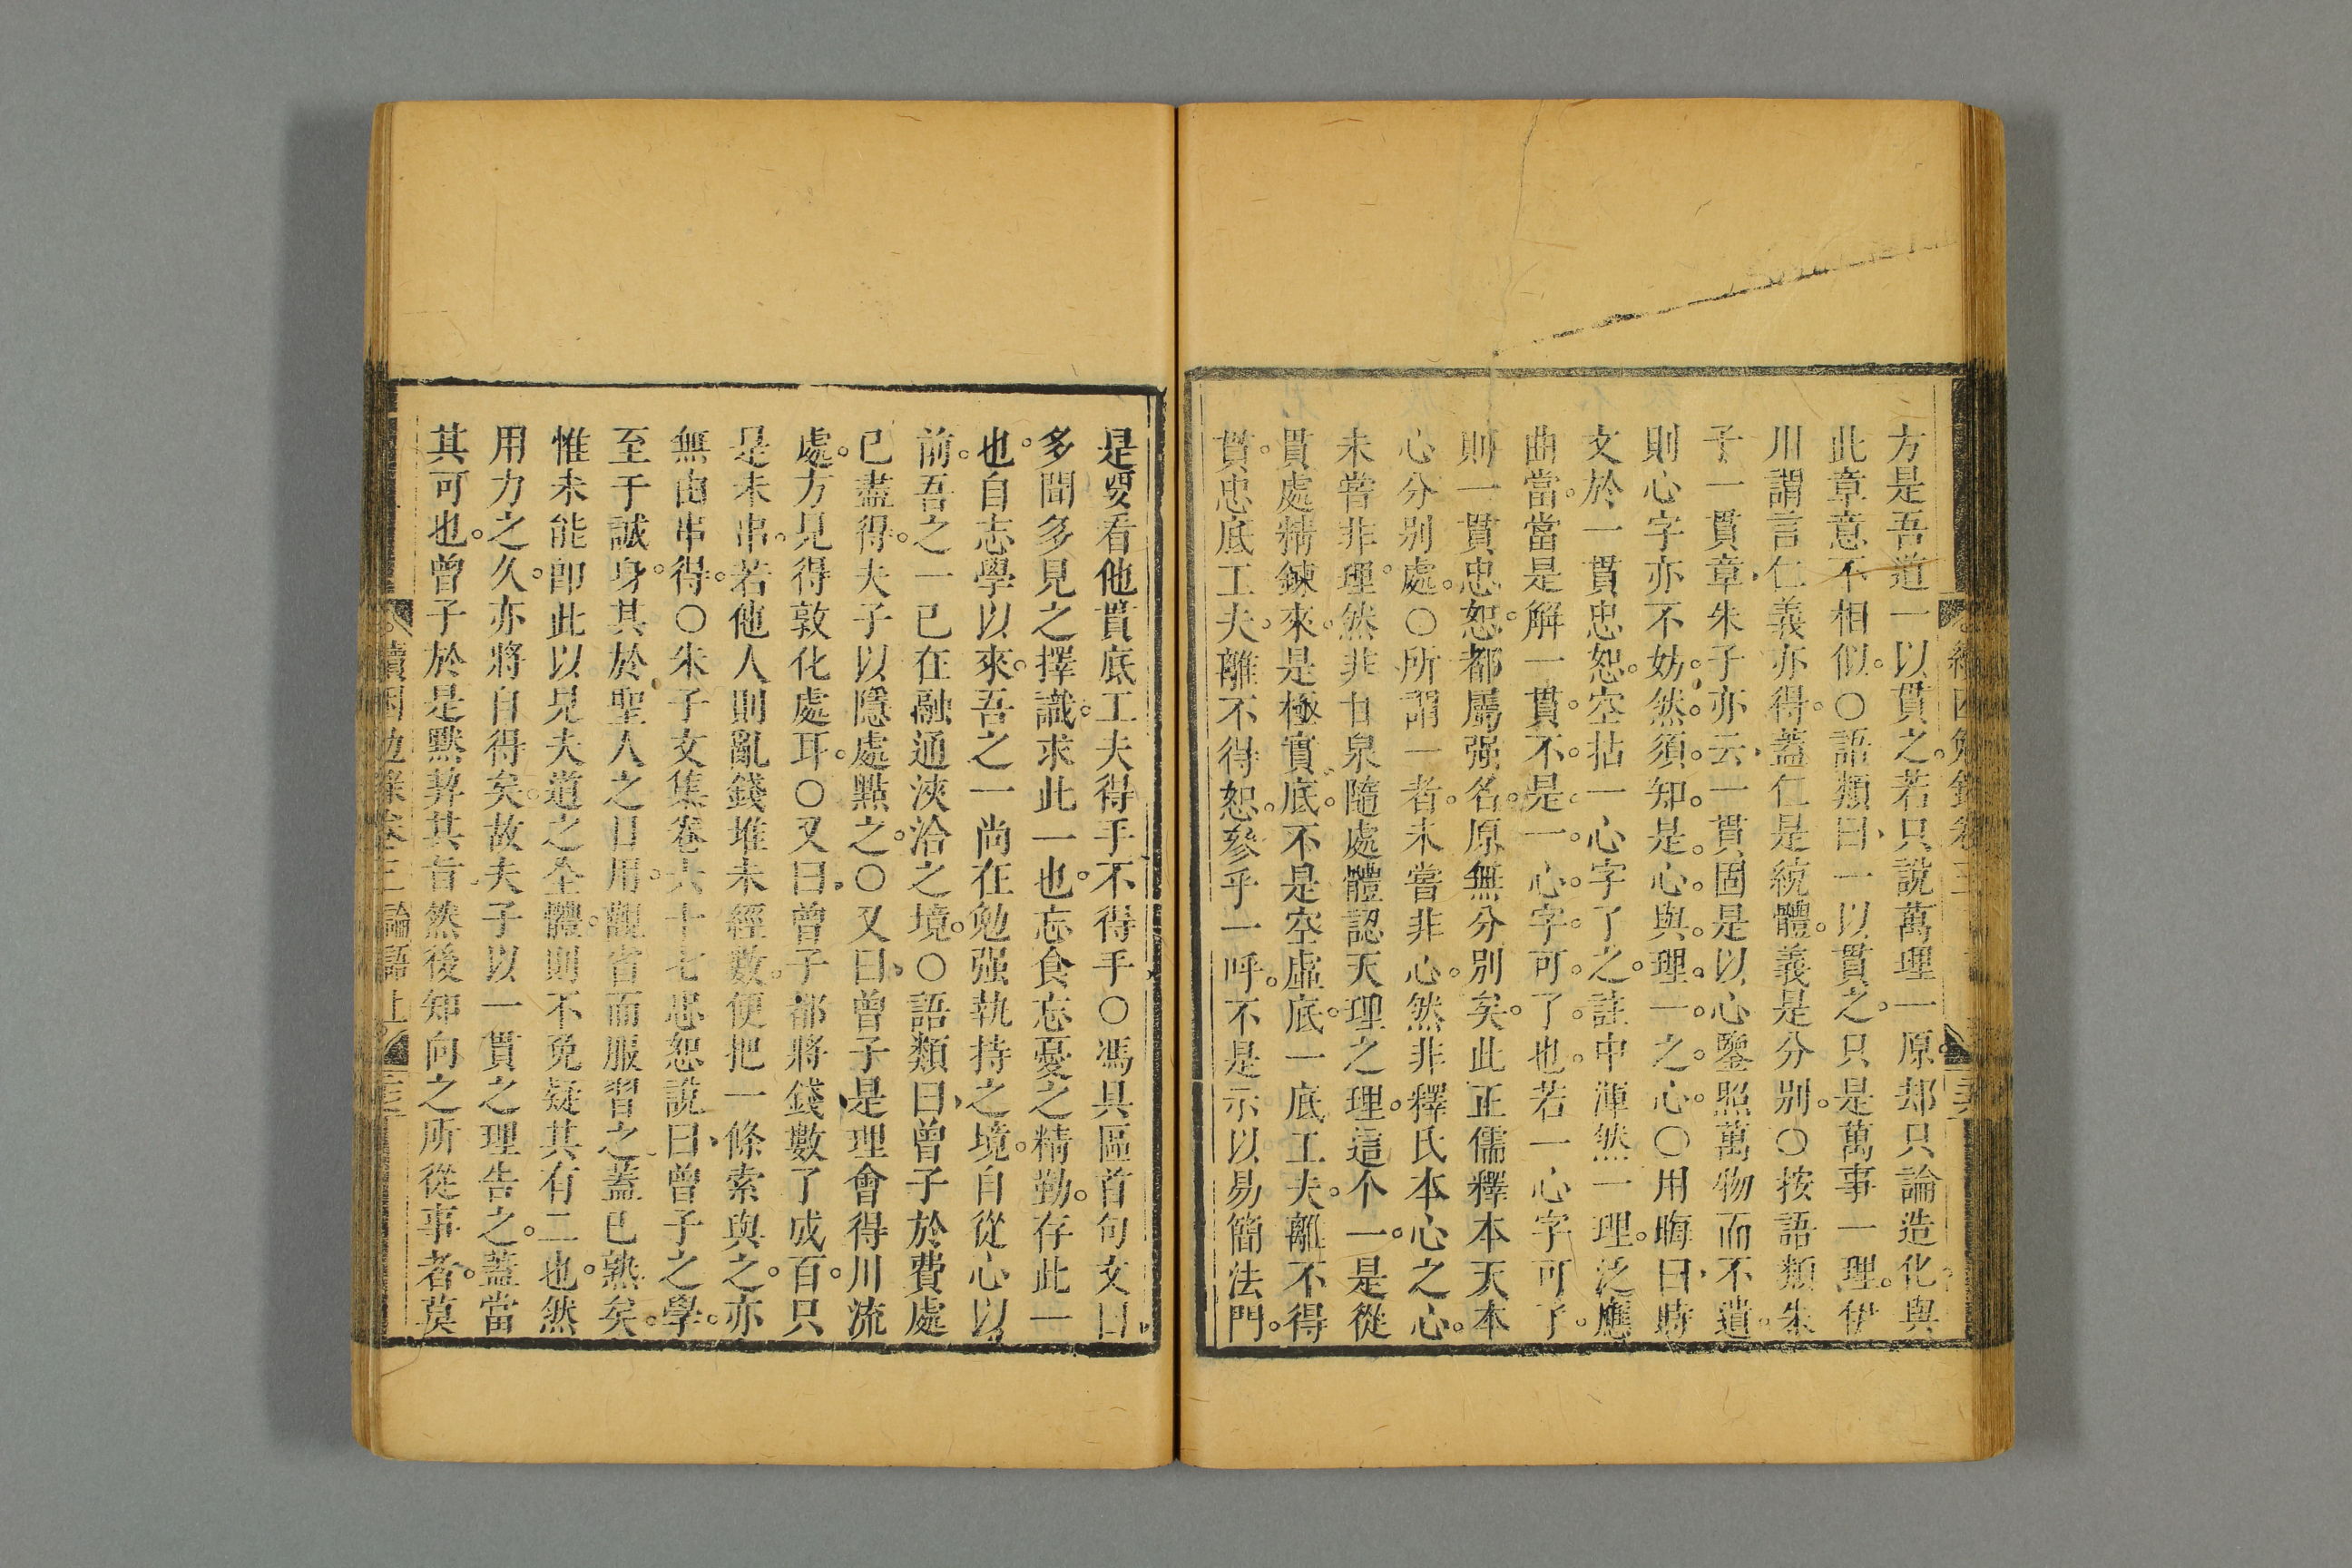 方是吾道一以貫之若只說萬理一原却只論造化與
此章意不相似○語類曰一以貫之只是萬事一理伊
川謂言仁義亦得蓋仁是統體義是分别○按語類朱
子一貫章朱子亦云一貫固是以心鑒照萬物而不遺
則心字亦不妨然須知是心與理一之心○用晦曰時
文於一貫忠恕空拈一心字了之註中渾然一理泛應
曲當當是解一貫不是一心字可了也若一心字可了
則一貫忠恕都屬强名原無分別矣此正儒釋本天本
心分别處○所謂一者未嘗非心然非釋氏本心之心
未嘗非理然非甘泉隨處體認天理之理這个一是從
貫處精鍊來是極實底不是空虛底一底工夫離不得
貫忠底工夫離不得恕參乎一呼不是示以易簡法門
是要看他貫底工夫得手不得手○馮具區首句文曰
多聞多見之擇識求此一也忘食忘憂之精勤存此一
也自志學以來吾之一尚在勉强執持之境自從心以
前吾之一已在融通浹洽之境○語類曰曾子於費處
已盡得夫子以隱處點之○又曰曾子是理會得川流
處方見得敦化處耳○又曰曾子都將錢數了成百只
是未串若他人則亂錢堆未經數便把一條索與之亦
無由串得○朱子文集卷六十七忠恕說曰曾子之學
至于誠身其於聖人之日用觀省而服習之蓋已熟矣
惟未能即此以見夫道之全體則不免疑其有二也然
用力之久亦將自得矣故夫子以一貫之理告之蓋當
其可也曾子於是默契其旨然後知向之所從事者莫
續困勉錄卷三 論語上